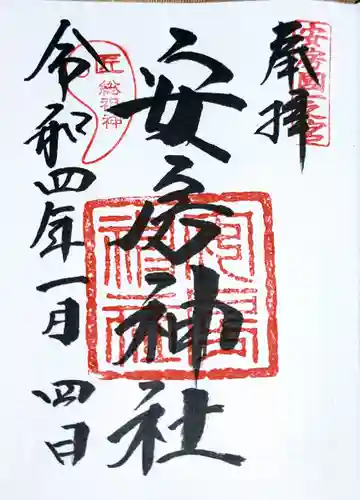 奉拝
安房國一之宮
安房神社
安房神社
匠総祖神
令和四年一月四日